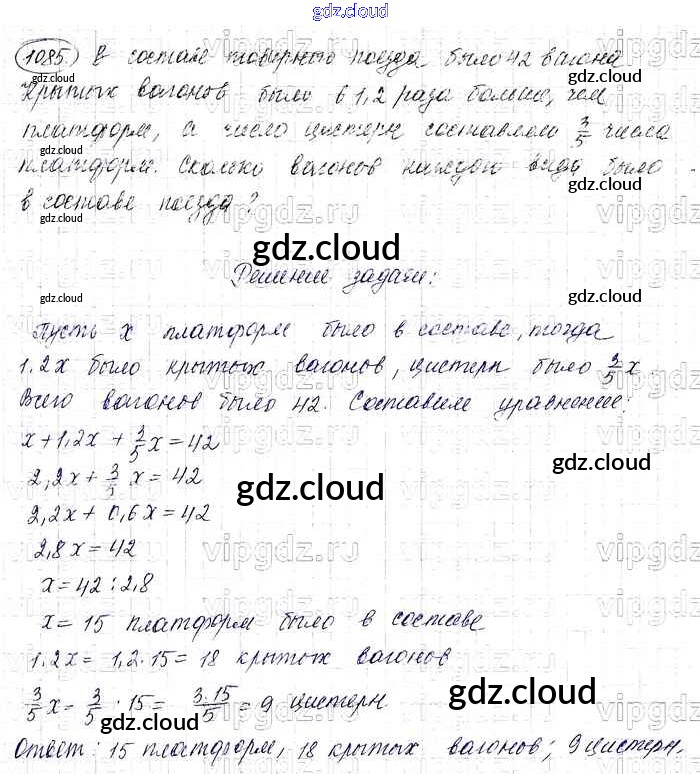 gdz.cloud
1085. В составе товарного поезда было 42 вагона
gdz.cloud
Крытых вагонов было в 1,2 раза больше, чем
платформ, а число цистерн составляло 3/5 числа
gdz.cloud
платформ. Сколько вагонов каждого вида было
в составе поезда?
gdz.cloud
gdz.cloud
Решение задачи:
gdz.cloud
gdz.cloud
Пусть x платформ было в составе, тогда
1.2x было крытых вагонов, цистерн было 3/5 x
Всего вагонов было 42. Составим уравнение:
x+1,2x + 3/5 x = 42
2,2x + 3/5 x = 42
gdz.cloud
gdz.cloud
2,2x + 0,6x = 42
vipgdz.ru
2,8x = 42
x = 42 : 2,8
x = 15 платформ было в составе
1.2x = 1,2 · 15 = 18 крытых вагонов
3/5 x = 3/5 · 15 = 3·15/5 = 9 цистерн
gdz.cloud
gdz.cloud
Ответ: 15 платформ, 18 крытых вагонов; 9 цистерн.